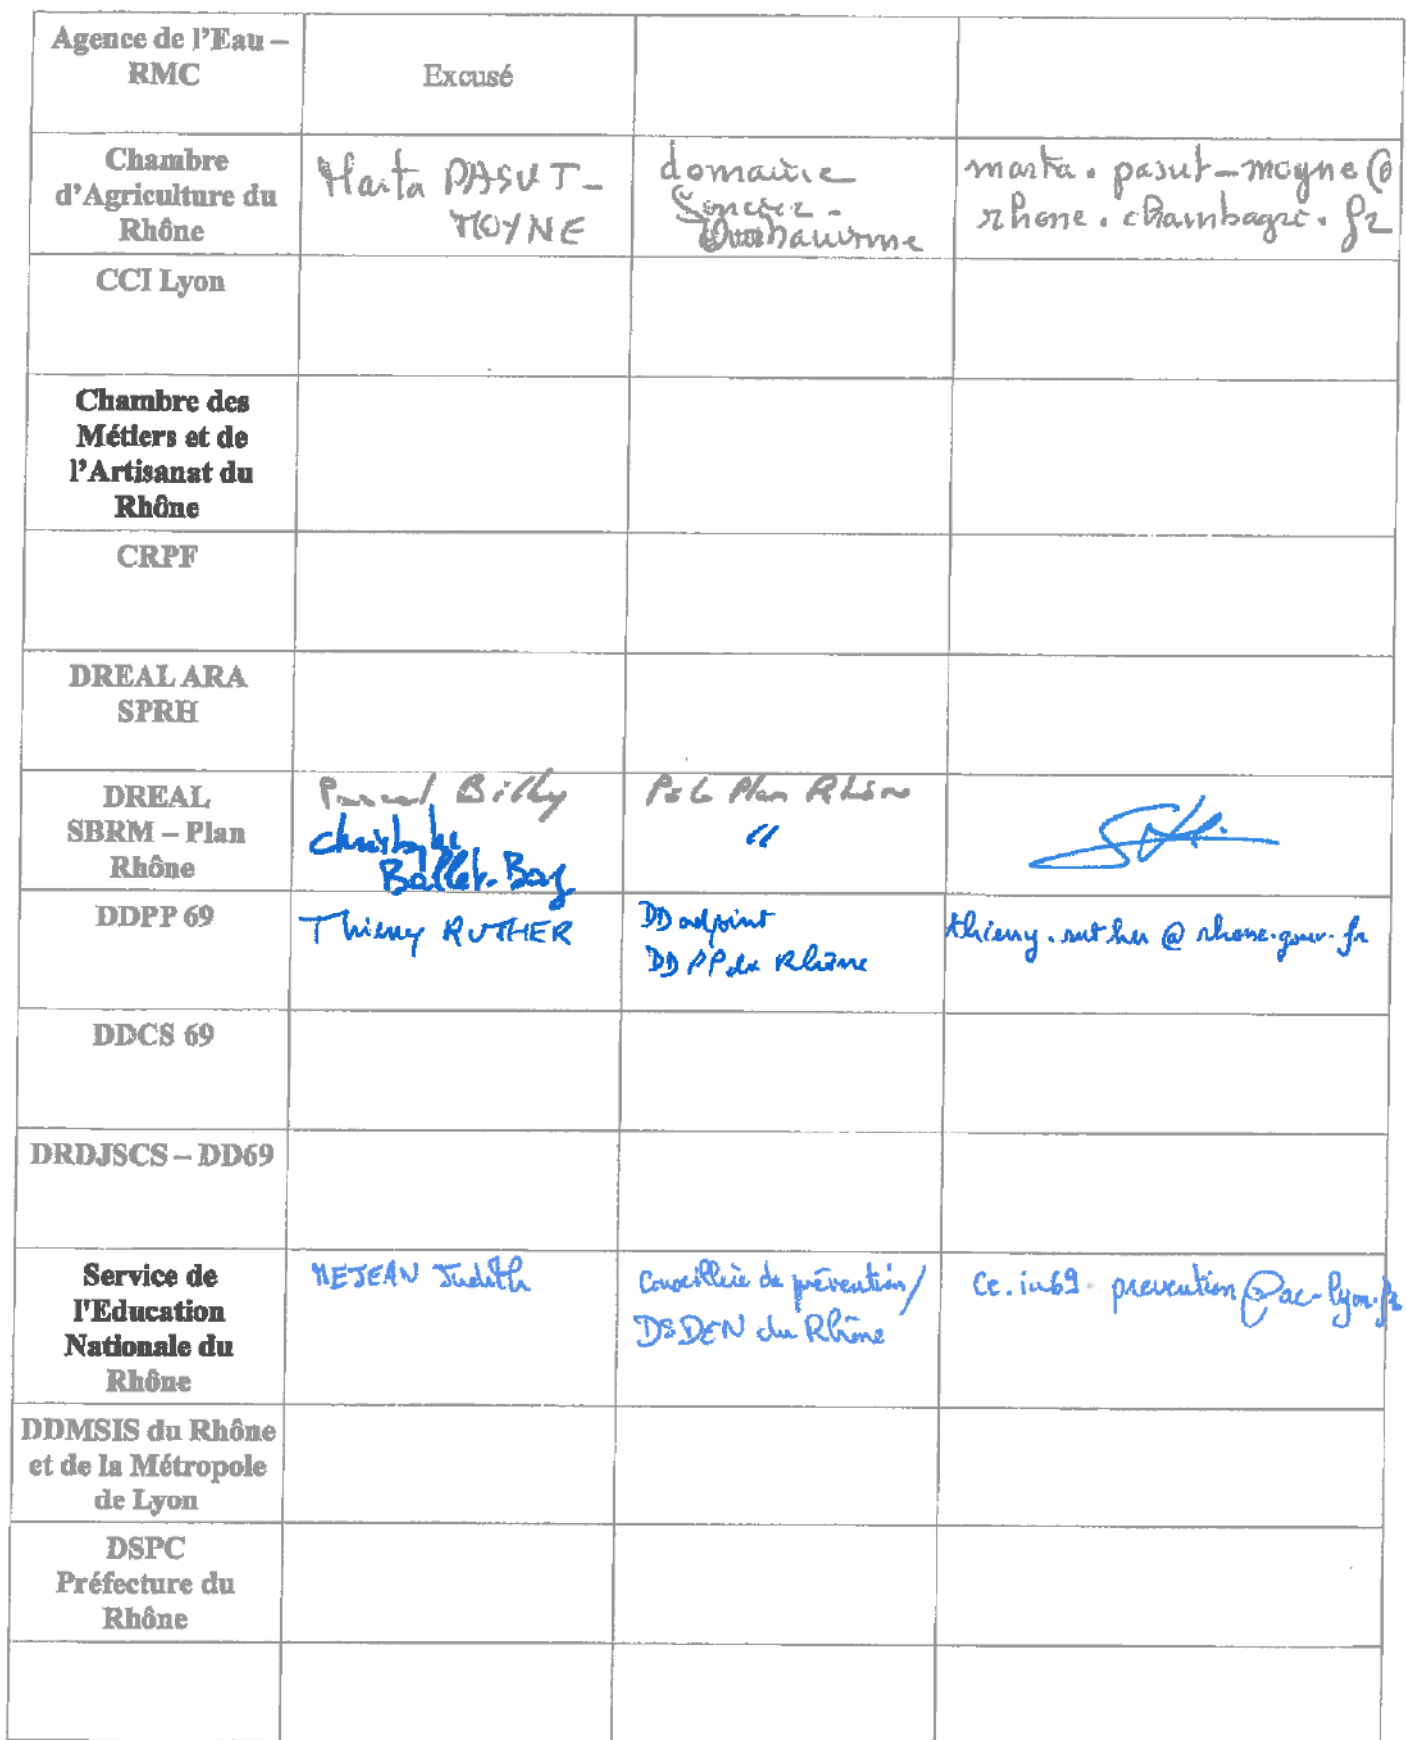 Agence de l'Eau –
RMC
Excusé
Chambre
d'Agriculture du
Rhône
Marta PASUT-
MOYNE
domaine
foncier -
marta.pasut-moyne@
rhone.chambagri.fr
CCI Lyon
Chambre des
Métiers et de
l'Artisanat du
Rhône
CRPF
DREAL ARA
SPRH
DREAL
SBRM – Plan
Rhône
Pascal Billy
Christophe
Ballet-Baz
Pole Plan Rhône
"
DDPP 69
Thierry RUTHER
DD adjoint
DDPP du Rhône
thierry.ruther@rhone.gouv.fr
DDCS 69
DRDJSCS – DD69
Service de
l'Education
Nationale du
Rhône
MEJEAN Judith
Conseillère de prévention/
DSDEN du Rhône
ce.ia69-prevention@ac-lyon.fr
DDMSIS du Rhône
et de la Métropole
de Lyon
DSPC
Préfecture du
Rhône